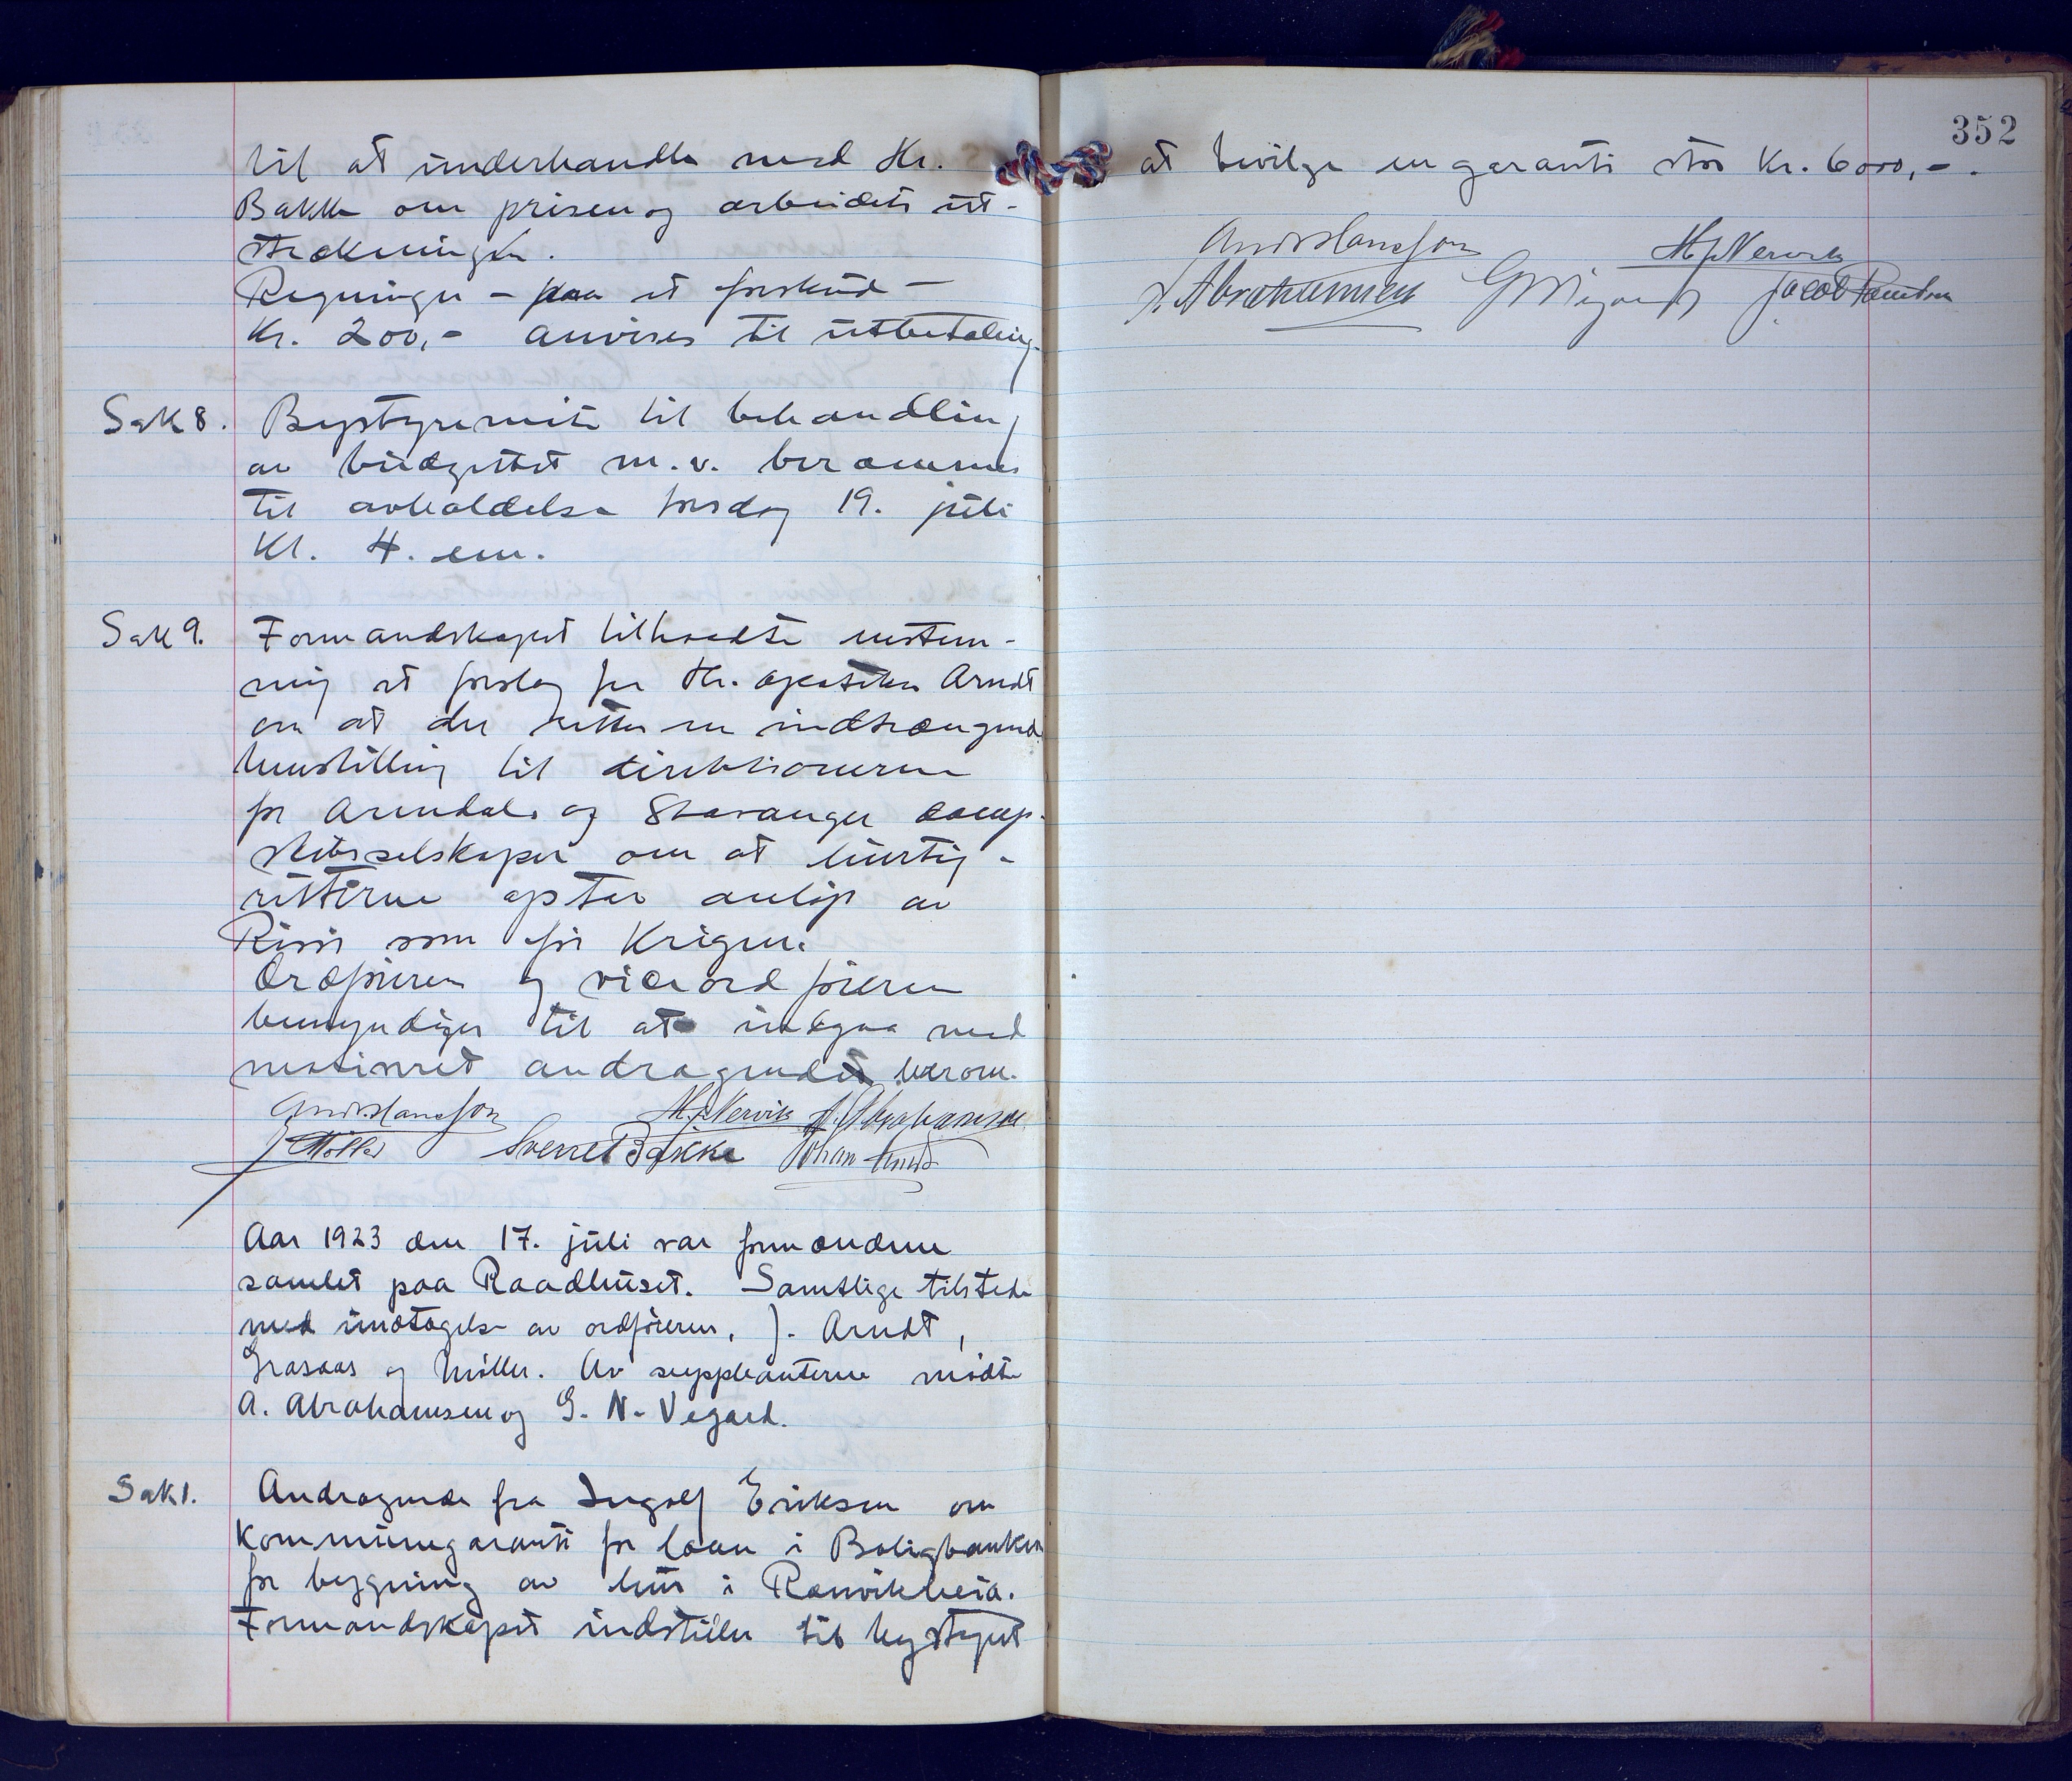 til at underhandle med Hr.
Bakke om prisen og arbeidets ut-
strækningen.
Regninger - paa et forskud -
Kr. 200,- anvises til utbetaling.
Sak 8. Bystyremøte til behandling
av budgettet m.v. berammes
til avholdelse torsdag 19. juli
Kl. 4. em.
Sak 9. Formandskapet tiltraadte enstem-
mig et forslag fra Hr. apoteker Arndt
om at der rettes en indtrængende
henstilling til direktionerne
for Arendals og Stavanger damp-
skibsselskaper om at hurtig-
ruterne optar anløp av
Risør som før Krigen.
Ordføreren og viceordføreren
bemyndiges til at indgaa med
motivert andragende herom.
Andr. Hansson H. J. Nervik A. Abrahamsen
J Møller Sverre Bakke Johan Arndt
Aar 1923 den 17. juli var formændene
samlet paa Raadhuset. Samtlige tilstede
med undtagelse av ordføreren, J. Arndt,
Grasaas og Møller. Av suppleanterne mødte
A. Abrahamsen og G. N. Vegard.
Sak 1. Andragende fra Ingolf Eriksen om
Kommunegaranti for laan i Boligbanken
for bygning av hus i Ranvikheia.
Formandskapet indstiller til bystyret
352
at bevilge en garanti stor Kr. 6000,-.
Andr Hansson H. J. Nervik
A. Abrahamsen G N Vegard Jacob